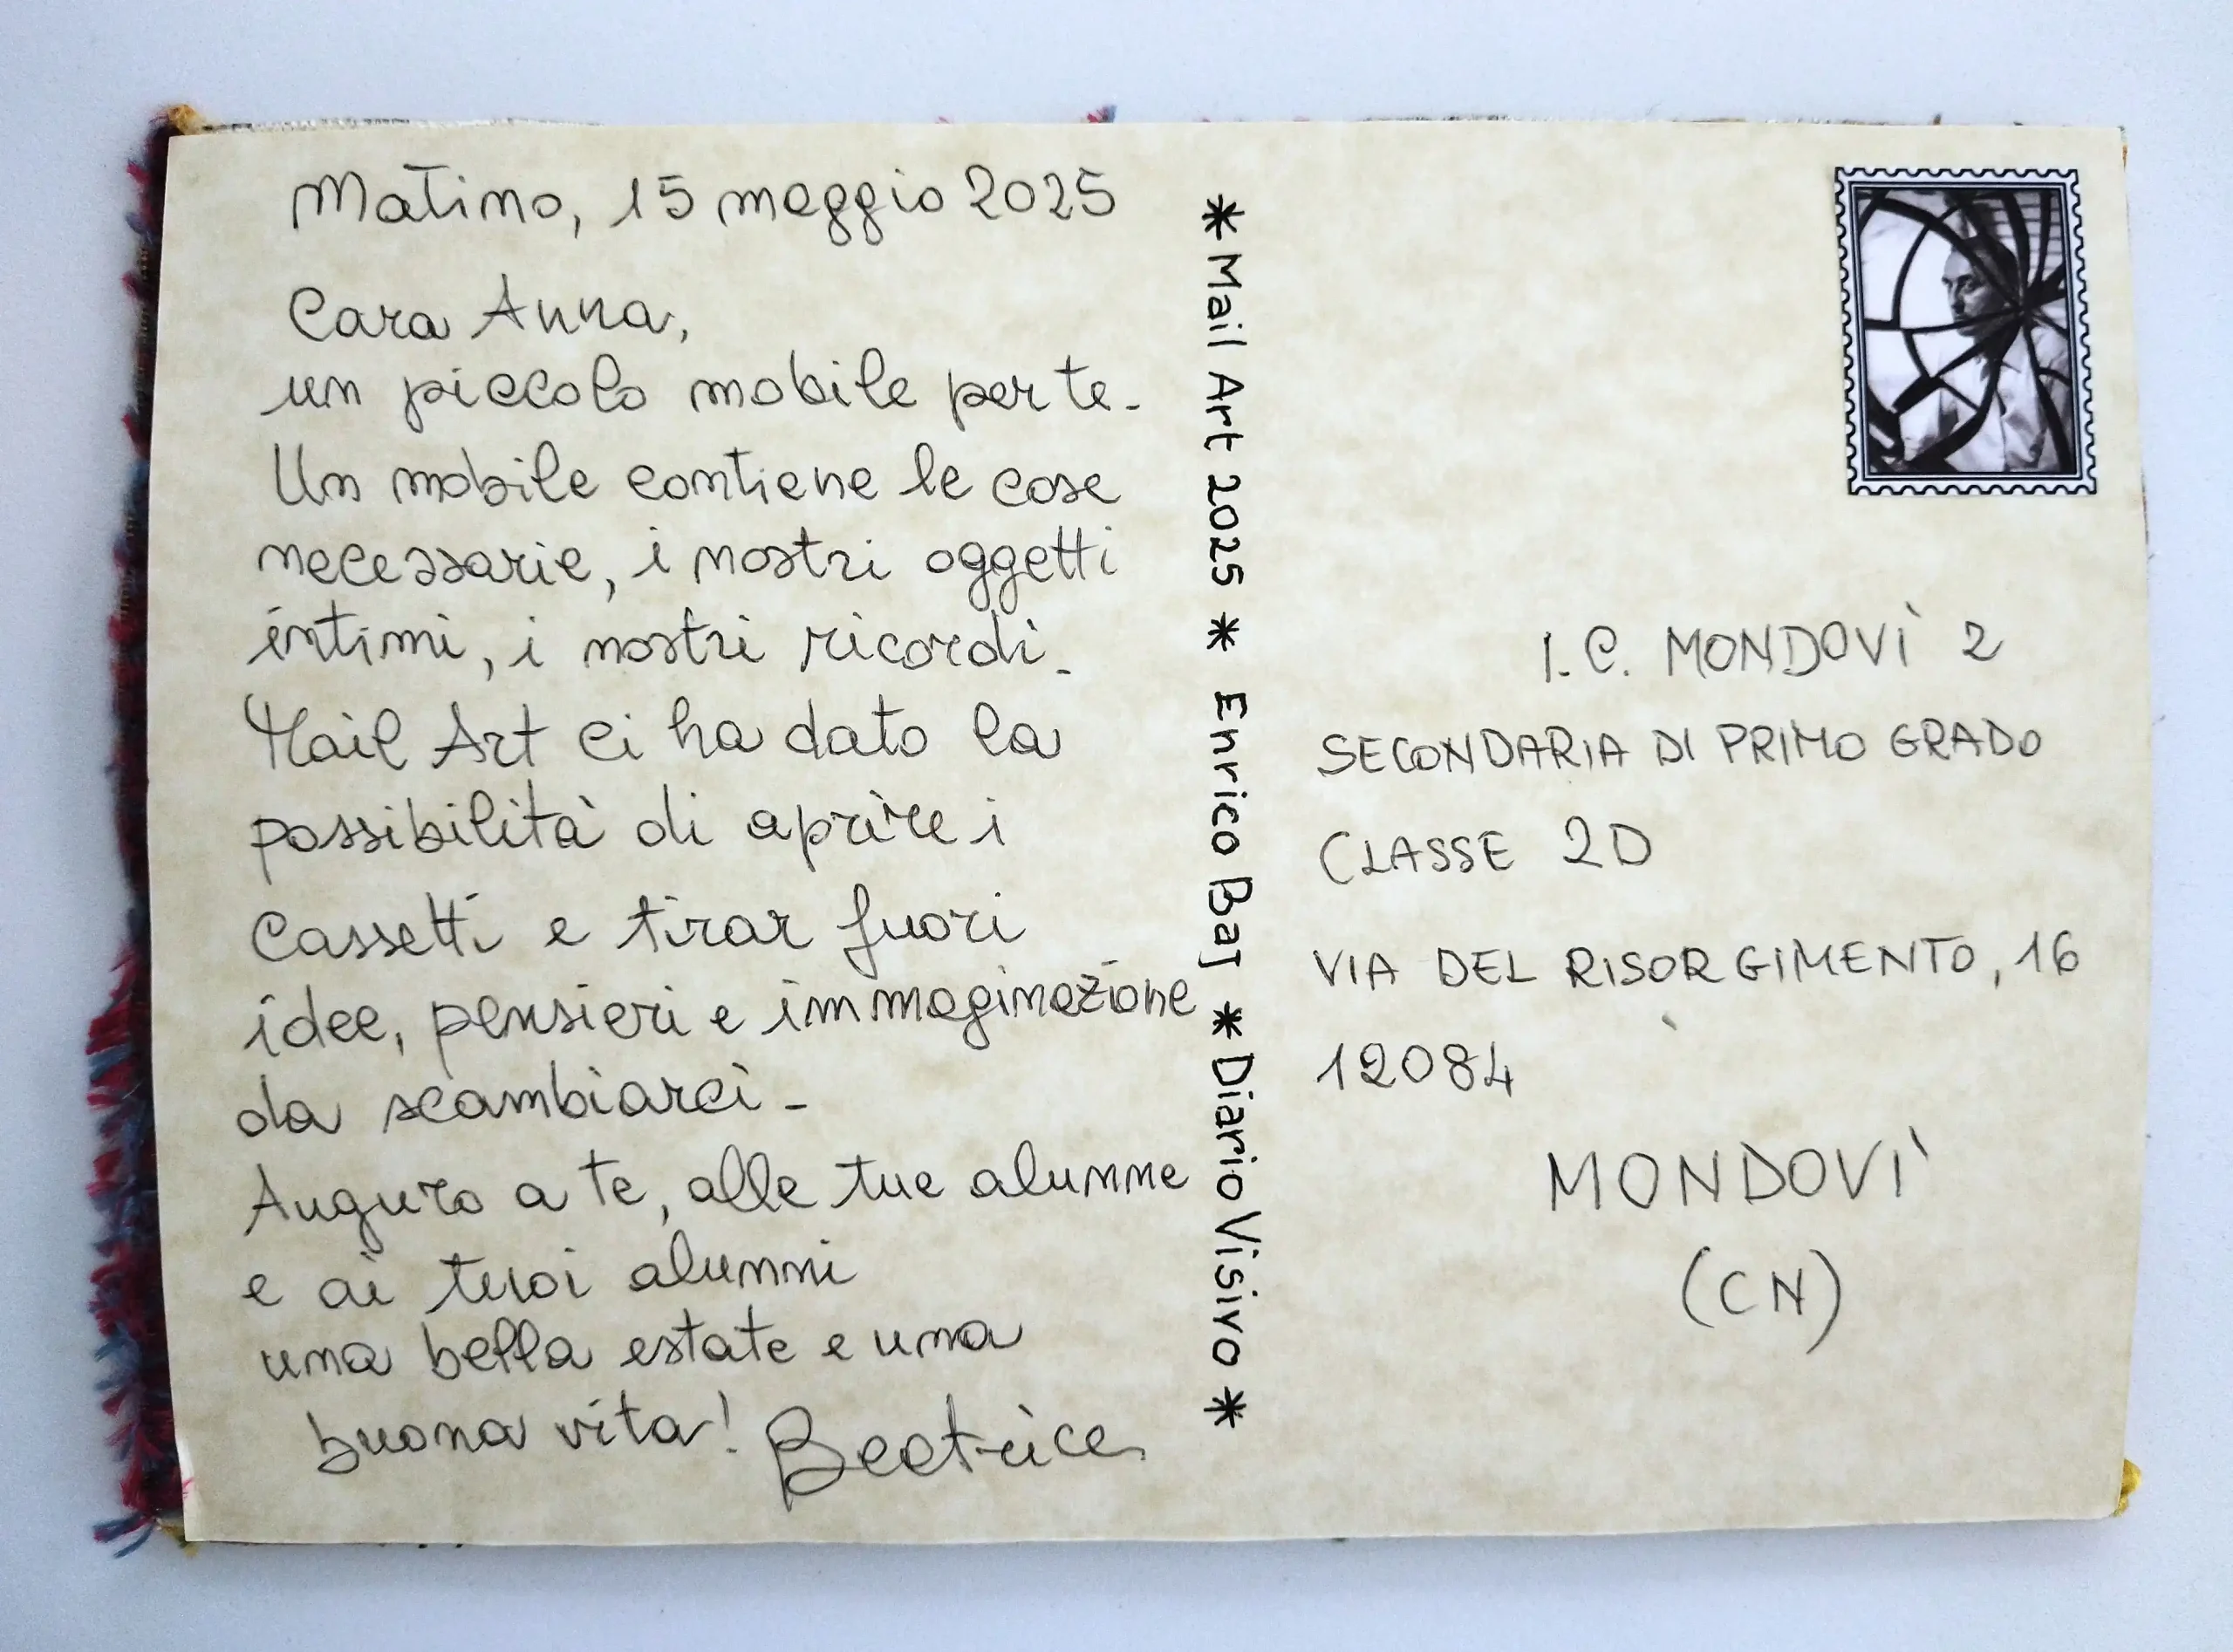 Matino, 15 maggio 2025
Cara Anna,
un piccolo mobile per te.
Un mobile contiene le cose
necessarie, i nostri oggetti
intimi, i nostri ricordi.
Mail Art ci ha dato la
possibilità di aprire i
cassetti e tirar fuori
idee, pensieri e immaginazione
da scambiarci.
Auguro a te, alle tue alunne
e ai tuoi alunni
una bella estate e una
buona vita! Beatrice
* Mail Art 2025 * Enrico Baj * Diario Visivo *
I.C. MONDOVÌ 2
SECONDARIA DI PRIMO GRADO
CLASSE 2D
VIA DEL RISORGIMENTO, 16
12084
MONDOVI'
(CN)